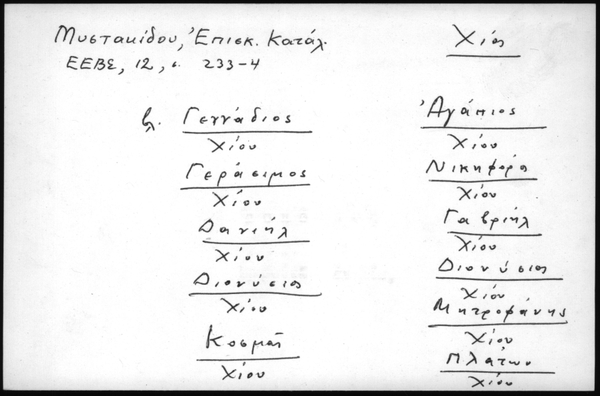 Μυστακίδου, Ἐπισκ. Κατάλ.
ΕΕΒΣ, 12, σ. 233-4
Χίος
βλ. Γεννάδιος
Χίου
Γεράσιμος
Χίου
Δανιήλ
Χίου
Διονύσιος
Χίου
Κοσμᾶς
Χίου
Ἀγάπιος
Χίου
Νικηφόρος
Χίου
Γαβριήλ
Χίου
Διονύσιος
Χίου
Μητροφάνης
Χίου
Πλάτων
Χίου